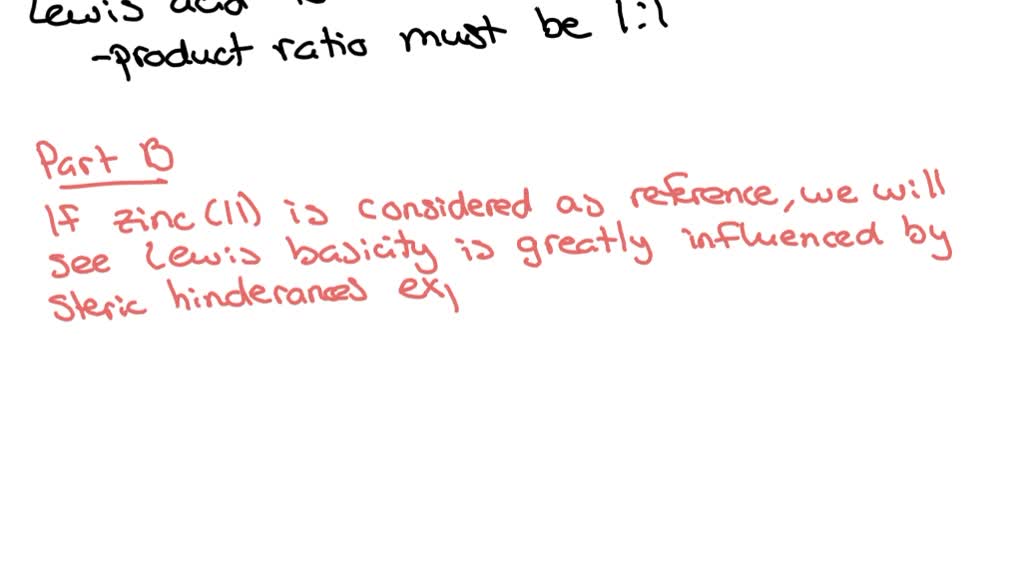 Lewis acid is
-product ratio must be 1:1
Part B
If zinc (II) is considered as reference, we will
see Lewis basicity is greatly influenced by
steric hinderances